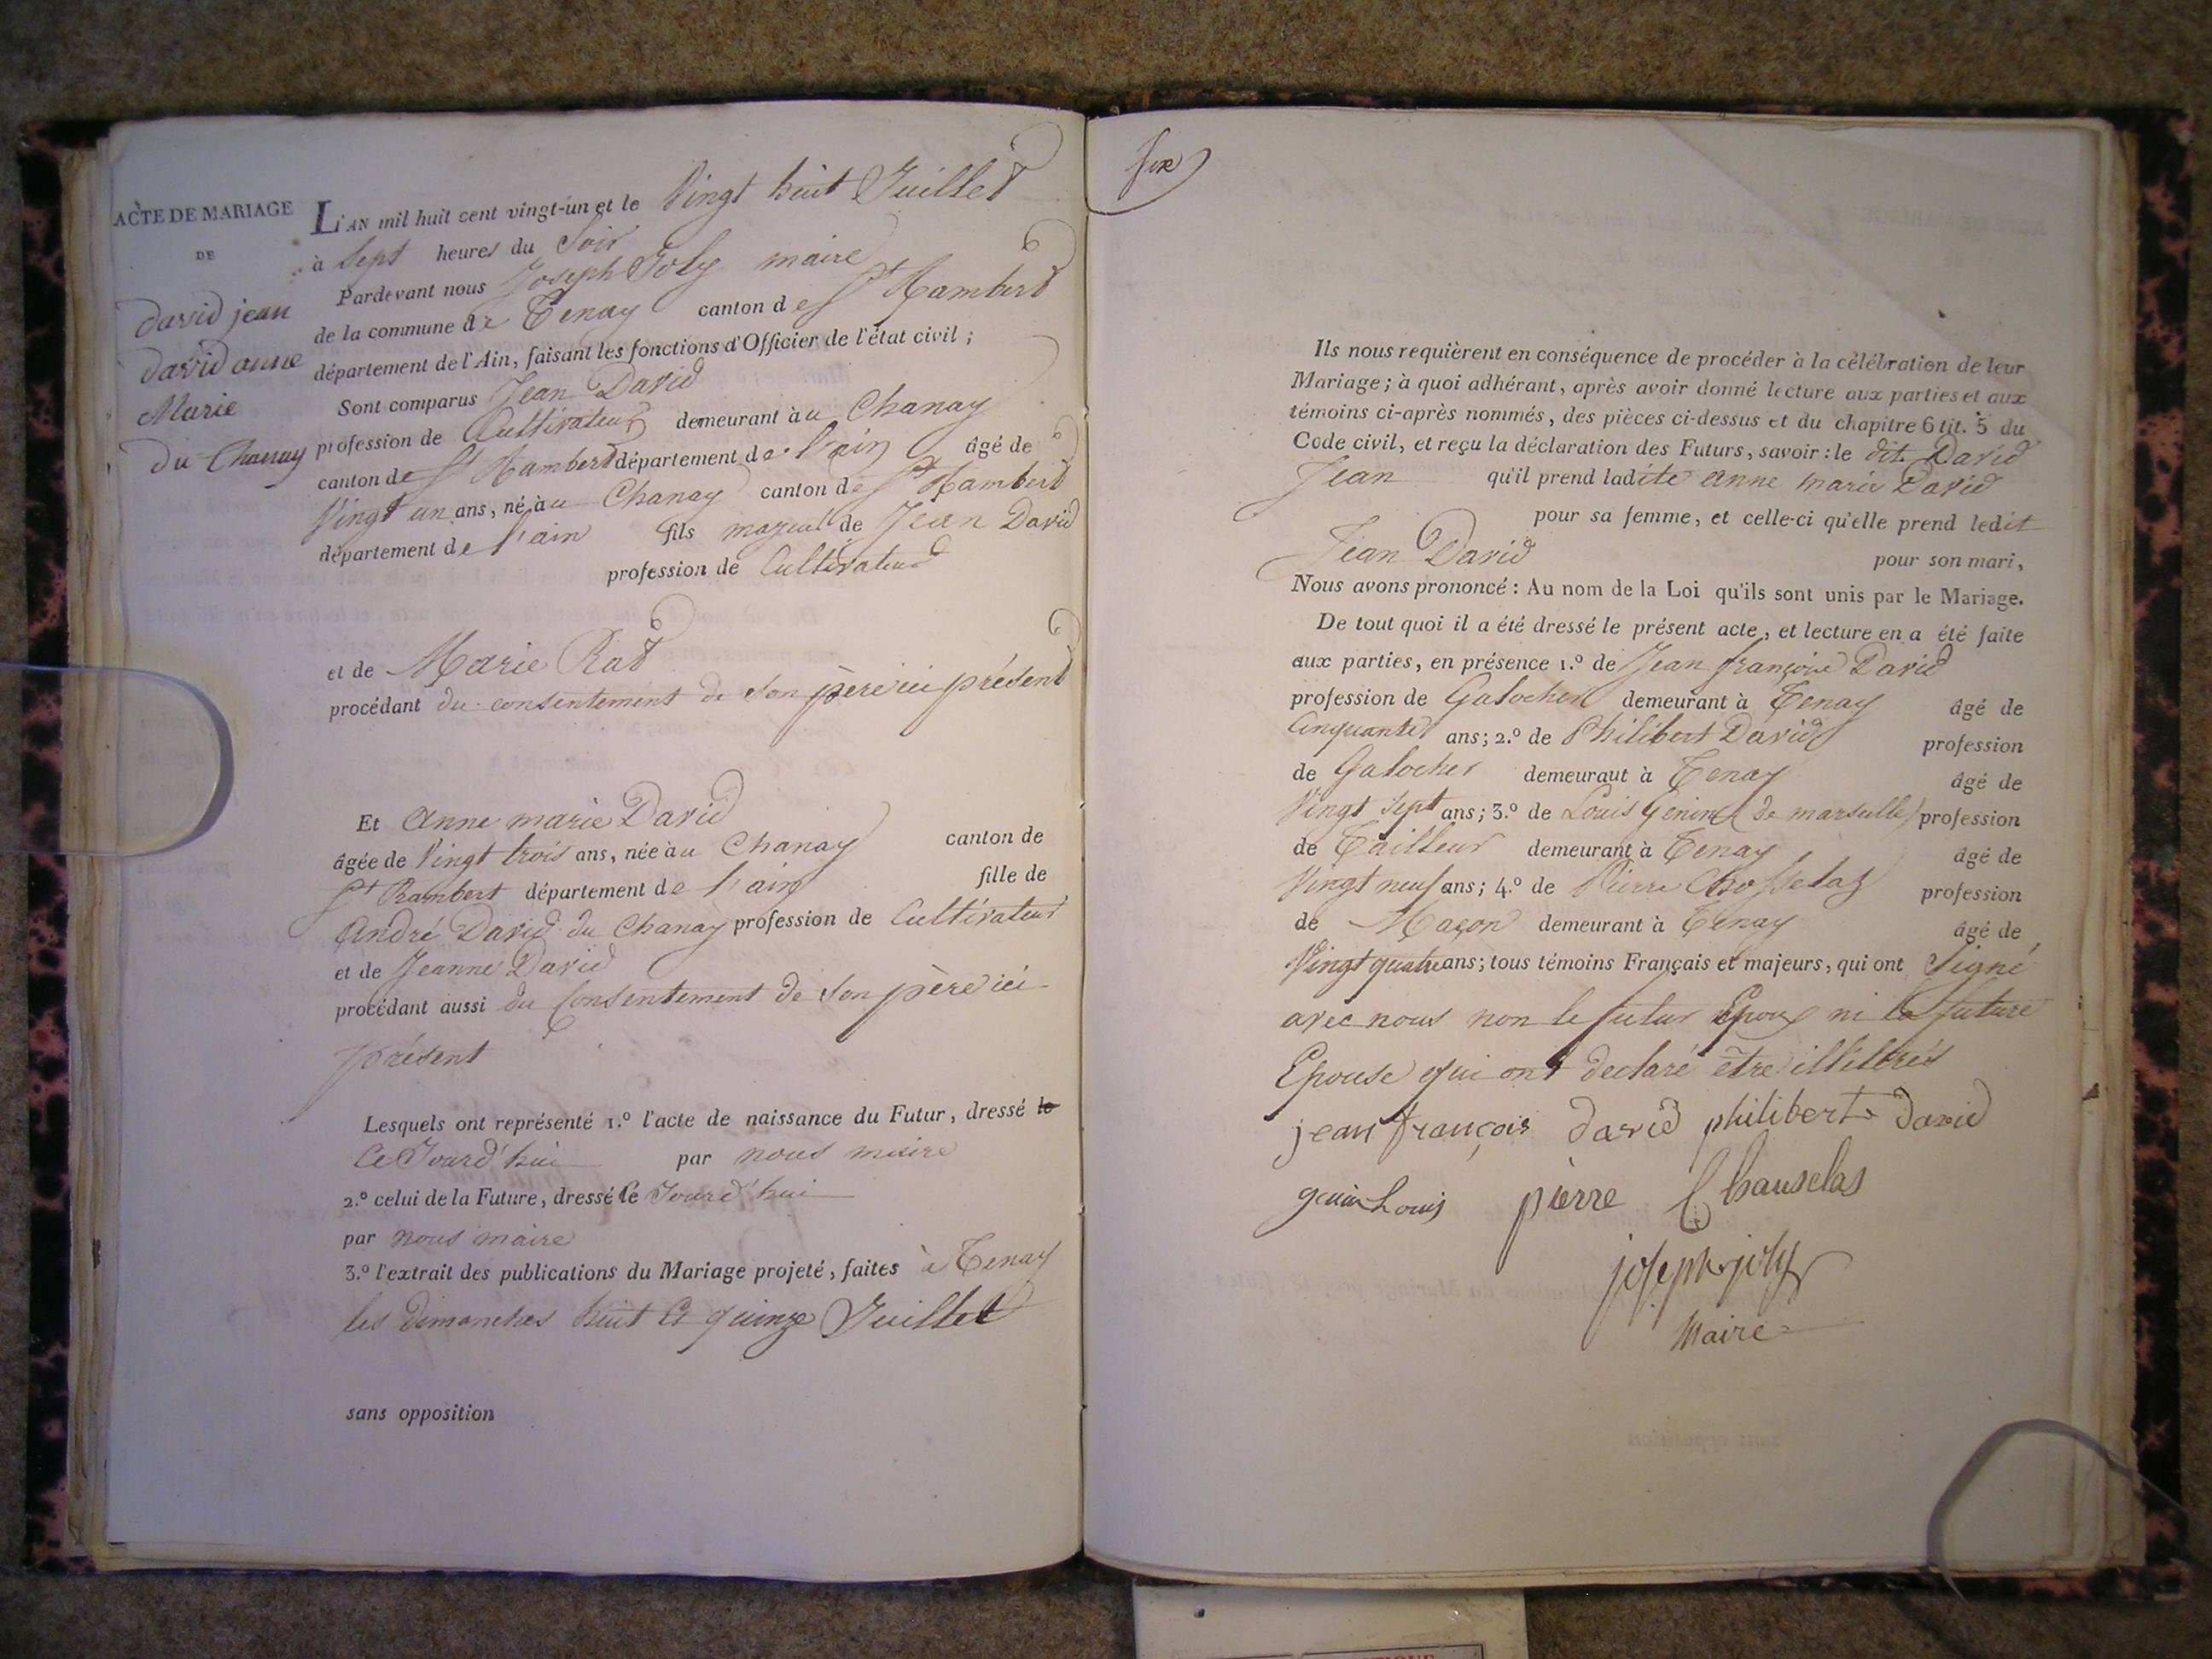 ACTE DE MARIAGE
DE
david jean
david anne
Marie
du Chanay
L'AN mil huit cent vingt-un et le Vingt huit Juillet
à Sept heures du Soir
Pardevant nous Joseph Joly maire
de la commune de Tenay canton de St Rambert
département de l'Ain, faisant les fonctions d'Officier de l'état civil ;
Sont comparus Jean David
profession de Cultivateur demeurant à u Chanay
canton de St Rambert département de l'ain âgé de
Vingt un ans, né à u Chanay canton de St Rambert
département de l'ain fils majeur de Jean David
profession de Cultivateur
et de Marie Rat
procédant du consentement de son père ici présent
Et Anne marie David
âgée de Vingt trois ans, née à u Chanay canton de
St Rambert département de l'ain fille de
André David du Chanay profession de Cultivateur
et de Jeanne David
procédant aussi du Consentement de son père ici
présent
Lesquels ont représenté 1.º l'acte de naissance du Futur, dressé le
Ce Jourd'hui par nous maire
2.º celui de la Future, dressé Ce Jourd'hui
par nous maire
3.º l'extrait des publications du Mariage projeté, faites à Tenay
les dimanches huit et quinze Juillet
sans opposition
Ils nous requièrent en conséquence de procéder à la célébration de leur
Mariage ; à quoi adhérant, après avoir donné lecture aux parties et aux
témoins ci-après nommés, des pièces ci-dessus et du chapitre 6 tit. 5 du
Code civil, et reçu la déclaration des Futurs, savoir : le dit David
Jean qu'il prend ladite anne marie David
pour sa femme, et celle-ci qu'elle prend ledit
Jean David pour son mari,
Nous avons prononcé : Au nom de la Loi qu'ils sont unis par le Mariage.
De tout quoi il a été dressé le présent acte, et lecture en a été faite
aux parties, en présence 1.º de Jean françois David
profession de Galocher demeurant à Tenay âgé de
Cinquante ans ; 2.º de Philibert David profession
de Galocher demeurant à Tenay âgé de
Vingt sept ans ; 3.º de Louis Genin (de marseille) profession
de Tailleur demeurant à Tenay âgé de
Vingt neuf ans ; 4.º de Pierre Chosselaz profession
de Maçon demeurant à Tenay âgé de
Vingt quatre ans ; tous témoins Français et majeurs, qui ont Signé
avec nous non le futur Epoux ni la future
Epouse qui ont declaré être illiterés
jean françois david philibert david
genin Louis pierre Chauselas
joseph joly
Maire